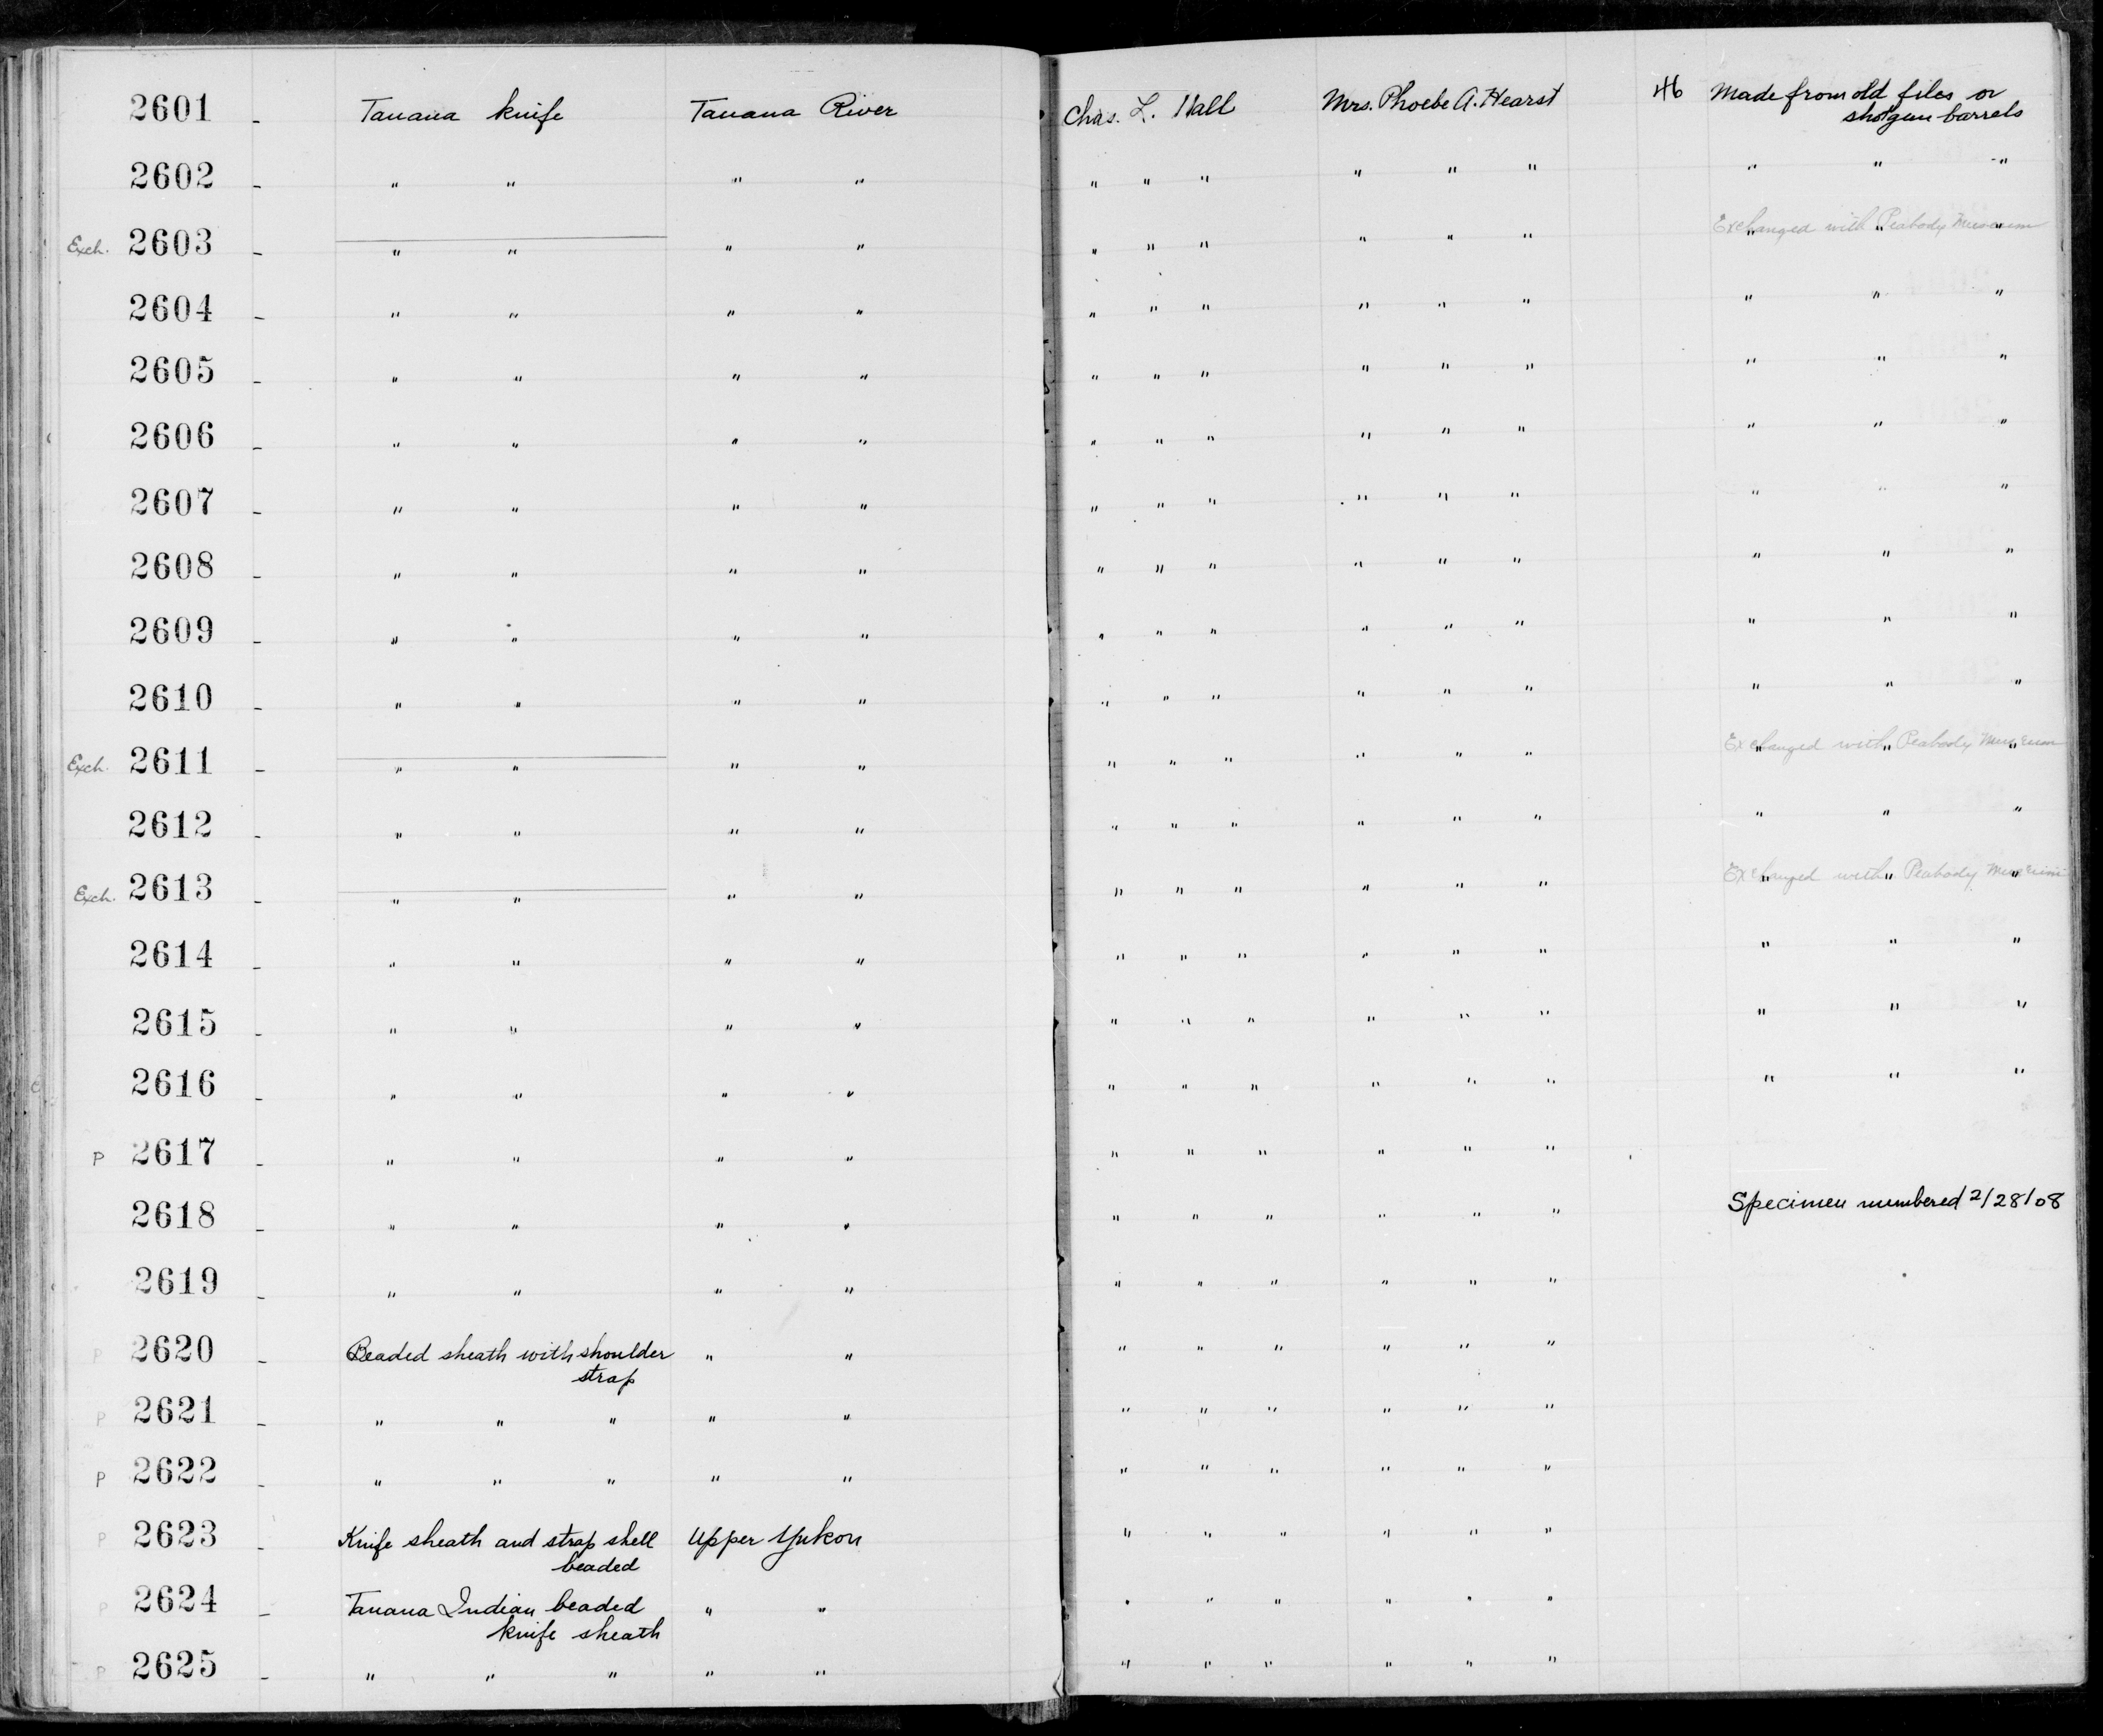 2601 - Tanana knife Tanana River Chas. L. Hall Mrs. Phoebe A. Hearst 46 Made from old files or
shotgun barrels
2602 - " " " " " " " " " " " " "
Exch. 2603 - " " " " " " " " " " Exchanged with Peabody Museum " " "
2604 - " " " " " " " " " " " " "
2605 - " " " " " " " " " " " " "
2606 - " " " " " " " " " " " " "
2607 - " " " " " " " " " " " " "
2608 - " " " " " " " " " " " " "
2609 - " " " " " " " " " " " " "
2610 - " " " " " " " " " " " " "
Exch. 2611 - " " " " " " " " " " Exchanged with Peabody Museum " " "
2612 - " " " " " " " " " " " " "
Exch. 2613 - " " " " " " " " " " Exchanged with Peabody Museum " " "
2614 - " " " " " " " " " " " " "
2615 - " " " " " " " " " " " " "
2616 - " " " " " " " " " " " " "
P 2617 - " " " " " " " " " "
2618 - " " " " " " " " " " Specimen numbered 2/28/08
2619 - " " " " " " " " " "
P 2620 - Beaded sheath with shoulder " " " " " " " "
strap
P 2621 - " " " " " " " " " " "
P 2622 - " " " " " " " " " " "
P 2623 - Knife sheath and strap shell Upper Yukon " " " " " "
beaded
P 2624 - Tanana Indian beaded " " " " " " " "
knife sheath
P 2625 - " " " " " " " " " " "